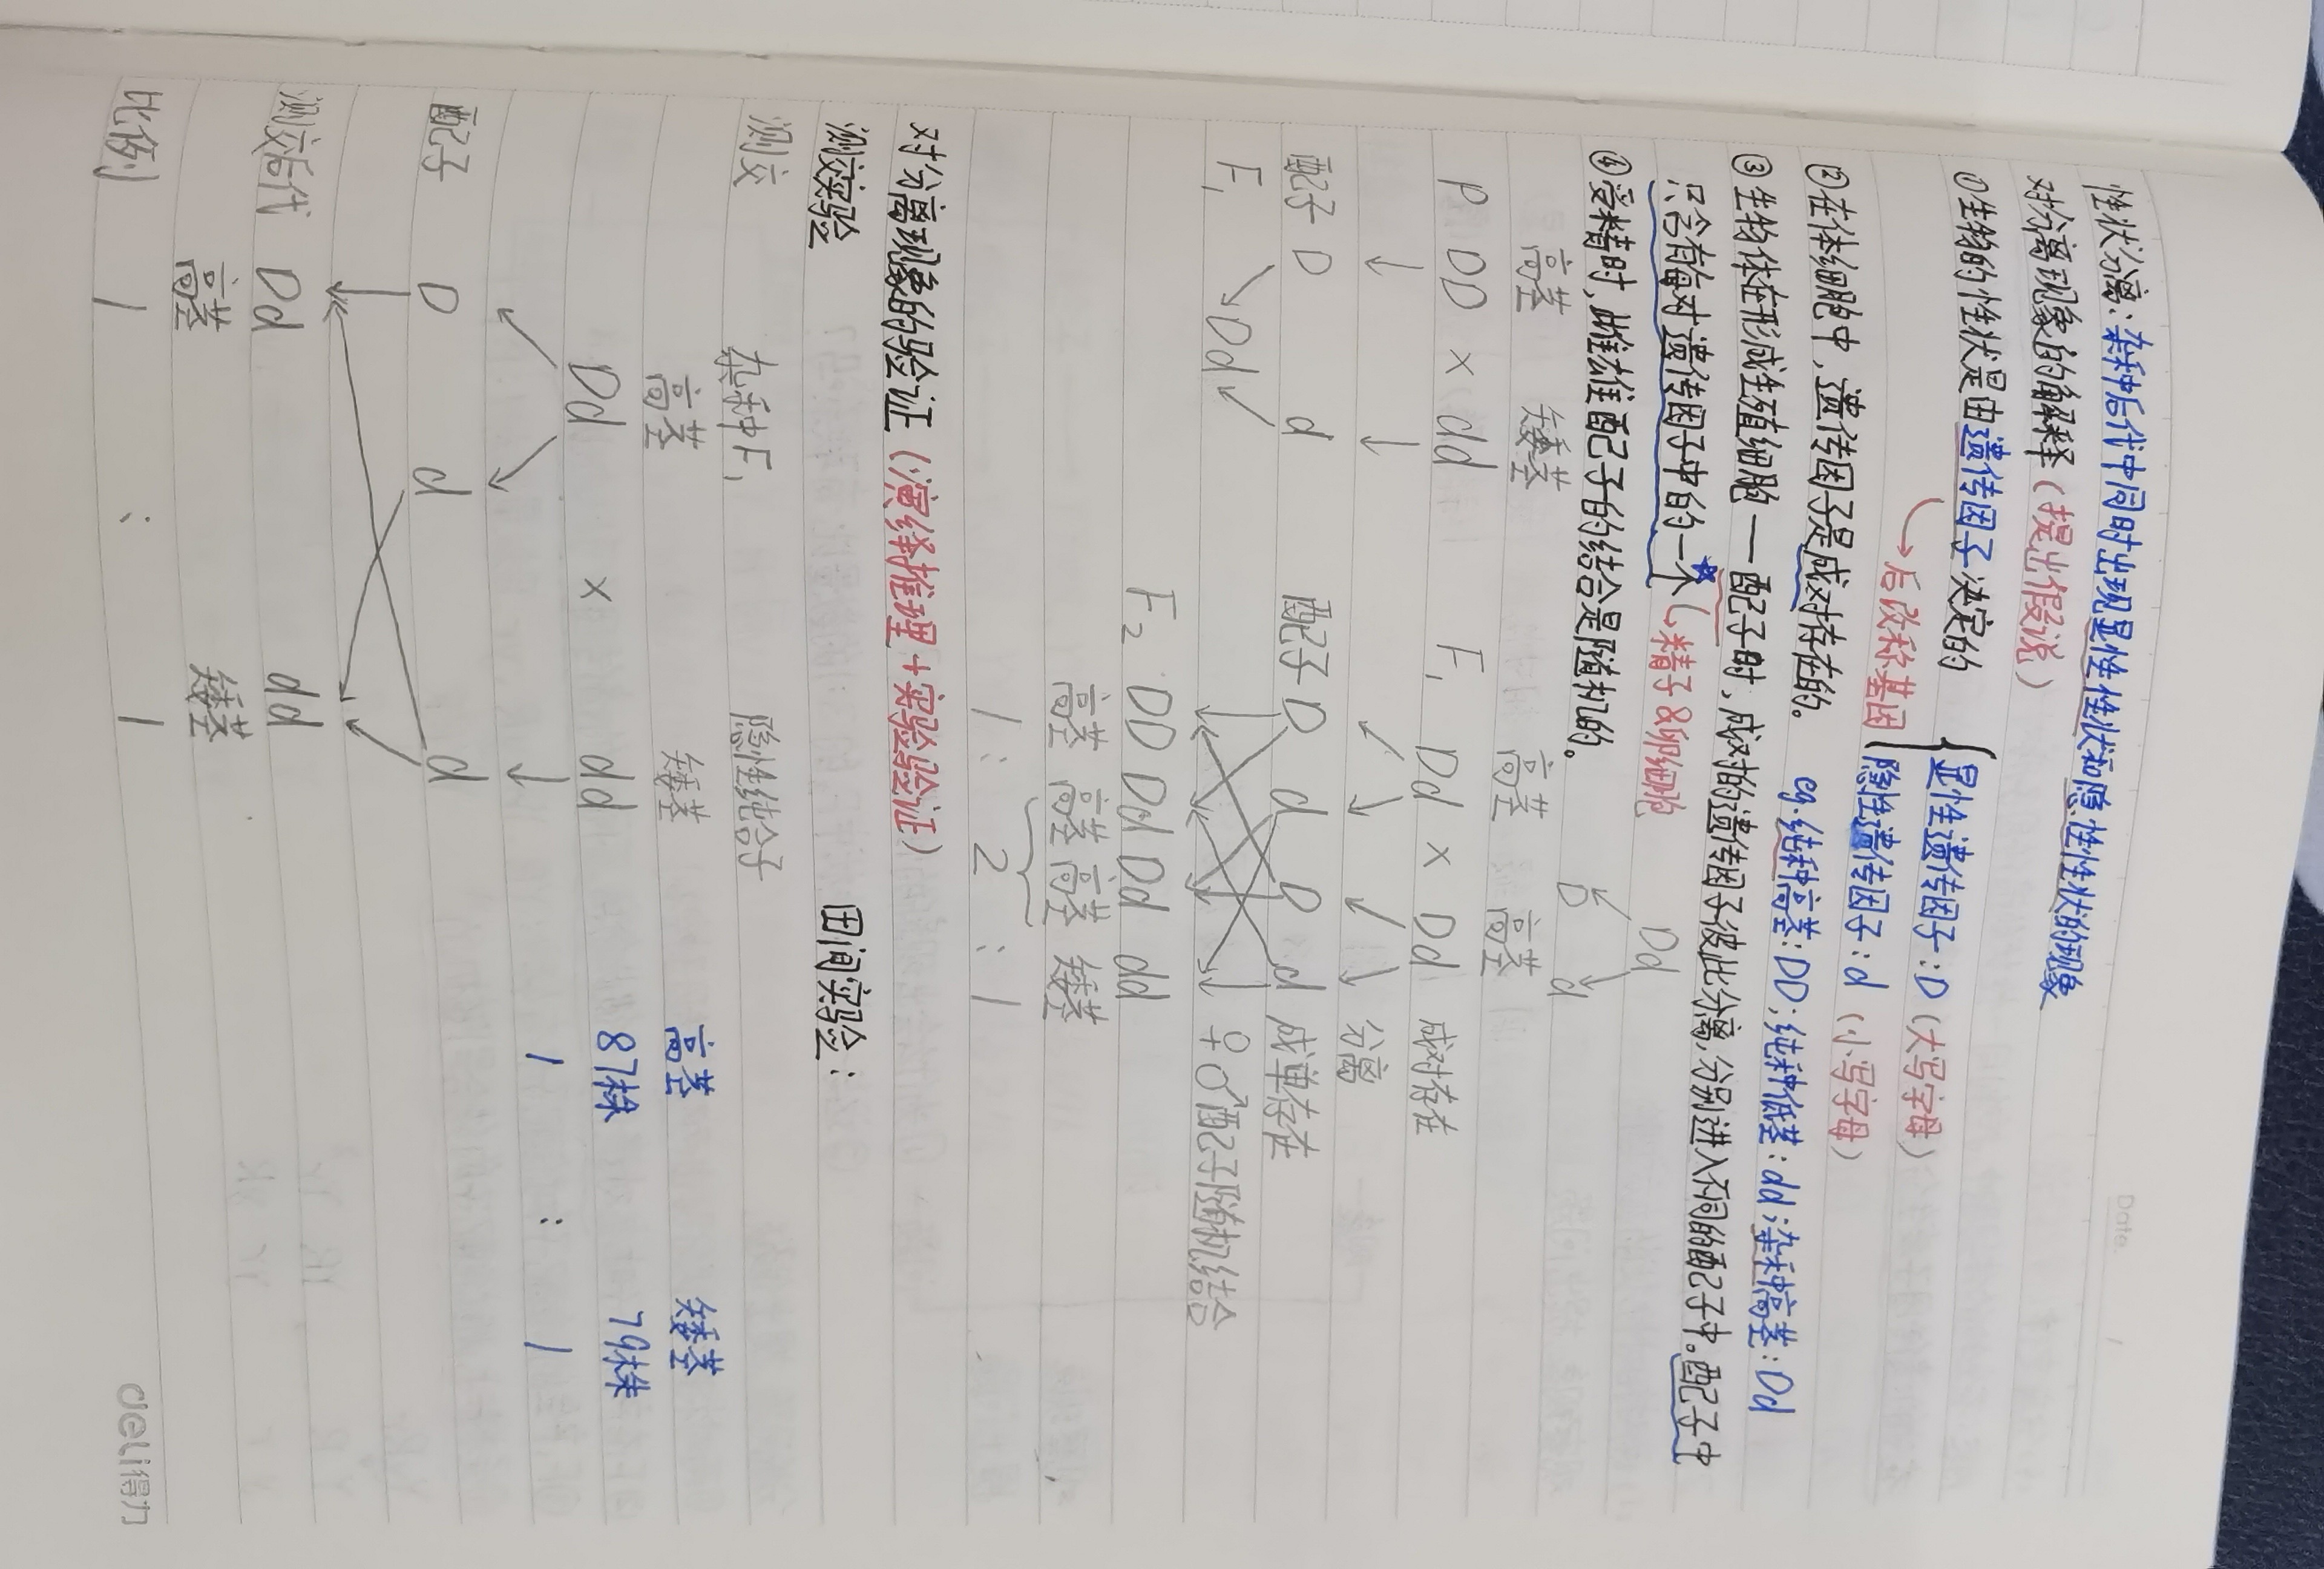 Date.
性状分离：杂种后代中同时出现显性性状和隐性性状的现象
对分离现象的解释（提出假说）
①生物的性状是由遗传因子决定的 { 显性遗传因子：D（大写字母）
↳后改称基因 隐性遗传因子：d（小写字母）
②在体细胞中，遗传因子是成对存在的。 eg.纯种高茎：DD；纯种低茎：dd；杂种高茎：Dd
③生物体在形成生殖细胞——配子时，成对的遗传因子彼此分离，分别进入不同的配子中。配子中
只含有每对遗传因子中的一个 ↳精子&卵细胞 Dd
④受精时，雌雄配子的结合是随机的。 D d
高茎 矮茎 高茎 高茎
P DD × dd F₁ Dd × Dd 成对存在
↓ ↓ ↙ ↘ ↙ ↘ 分离
配子 D d 配子 D d D d 成单存在
F₁ ↘ Dd ↙ ♀♂配子随机结合
F₂ DD Dd Dd dd
高茎 高茎 高茎 矮茎
1 : 2 : 1
对分离现象的验证（演绎推理+实验验证）
测交实验 田间实验：
测交 杂种F₁ 隐性纯合子
高茎 矮茎 高茎 矮茎
Dd × dd 87株 79株
↙ ↘ ↓ 1 : 1
配子 D d d
测交后代 Dd dd
高茎 矮茎
比例 1 : 1
deli得力